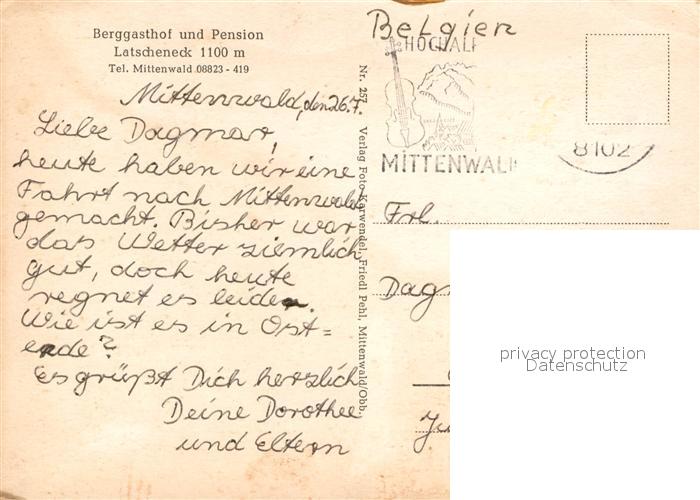 Berggasthof und Pension
Latscheneck 1100 m
Tel. Mittenwald 08823 - 419
Mittenwald, den 26.7.
Liebe Dagmar,
heute haben wir eine
Fahrt nach Mittenwald
gemacht. Bisher war
das Wetter ziemlich
gut, doch heute
regnet es leider.
Wie ist es in Ost=
ende?
Es grüßt Dich herzlich
Deine Dorothee
und Eltern
Nr. 257 Verlag Foto Karwendel, Friedl Pehl, Mittenwald/Obb.
Belgien
HOCHALP
MITTENWALD
8102
Frl.
Dagm
privacy protection
Datenschutz